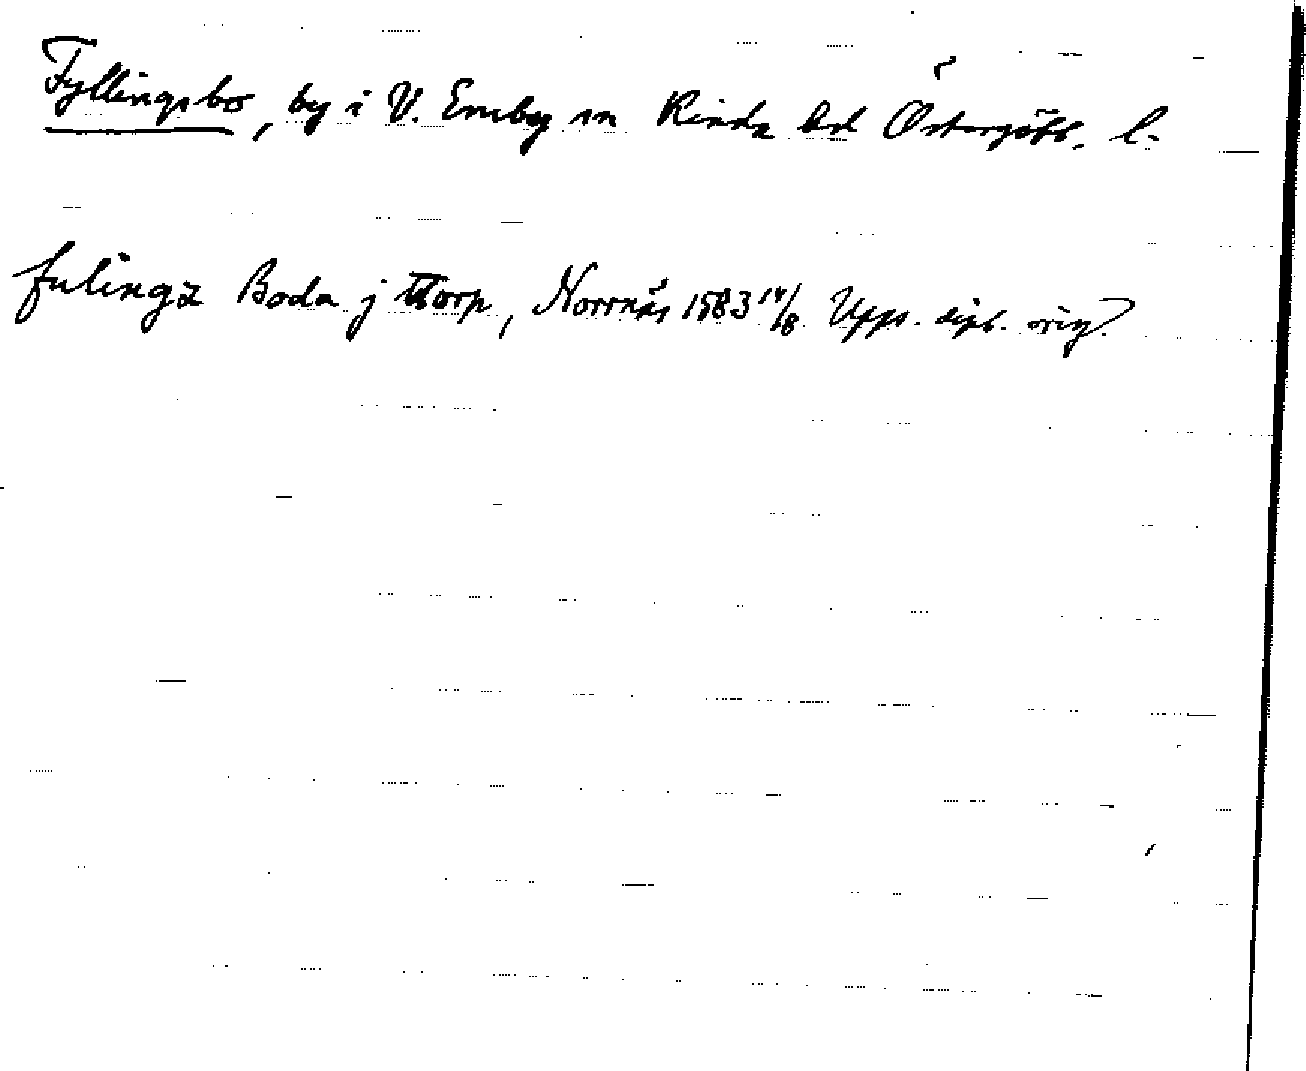 Fyllingsbo, by i V. Eneby sn Kinda hd Östergötl. l.
fulingz Boda j ttorp, Norrnäs 1583 14/8 Upps. dipl. orig.